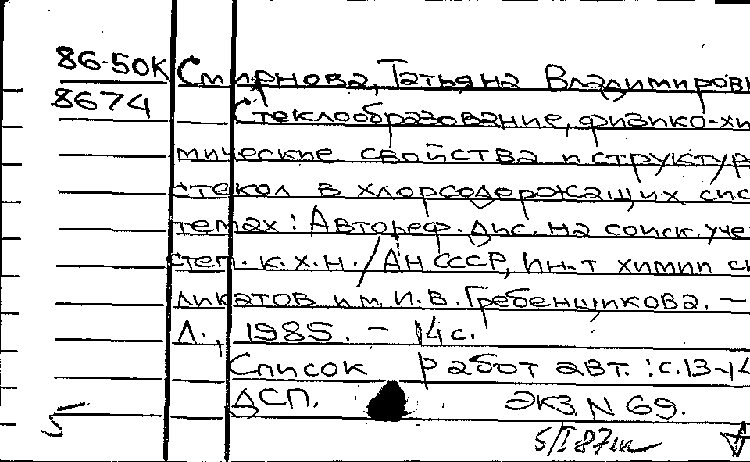 86-50К Смирнова, Татьяна Владимировн
8674 Стеклообразование, физико-хи
мические свойства и структур
стекол в хлорсодержащих сис
темах: Автореф. дис. на соиск. уче
степ. к.х.н. / АН СССР, Ин-т химии си
ликатов им. И.В. Гребенщикова. –
Л., 1985. – 14 с.
Список работ авт.: с.13-14
ДСП. Экз. N 69.